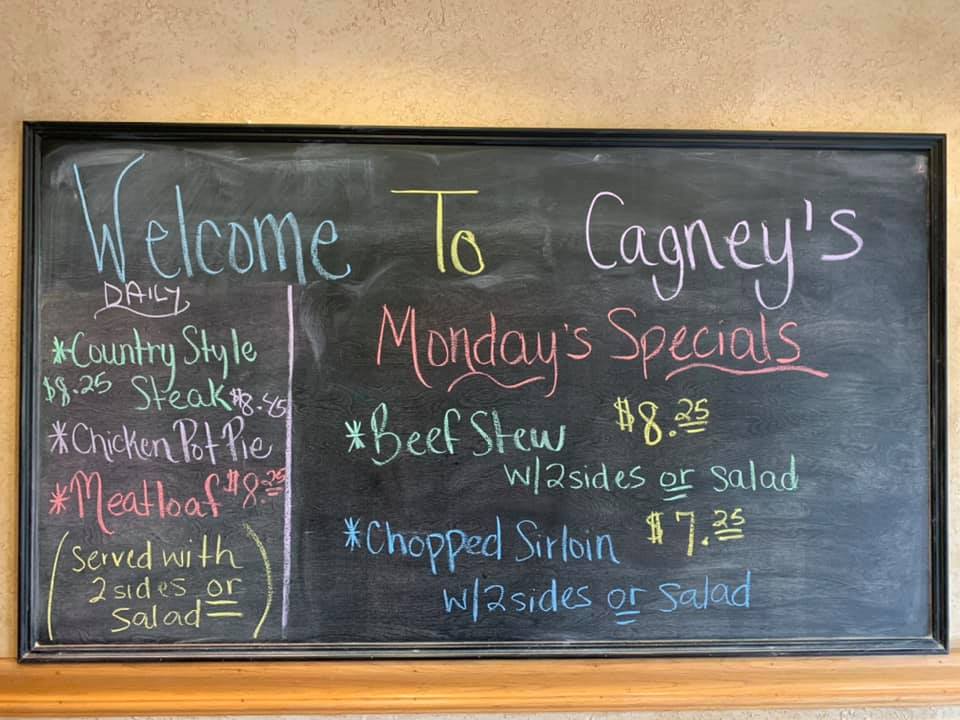 Welcome To Cagney's
DAILY
*Country Style
$8.25 Steak
$8.45
*Chicken Pot Pie
*Meatloaf $8.25
(served with
2 sides or
salad)
Monday's Specials
*Beef Stew $8.25
w/2 sides or salad
*Chopped Sirloin $7.25
w/2 sides or salad